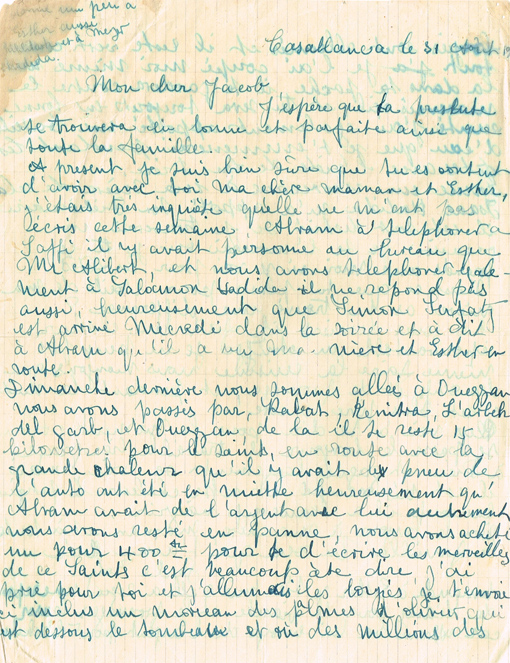 donne un peu à
Esther aussi
Casablanca le 31 août 19
Mon cher Jacob
J'espère que la présente
se trouvera en bonne et parfaite ainsi que
toute la famille.
A present je suis bien sûre que tu es content
d'avoir avec toi ma chère maman et Esther,
j'étais très inquiète qu'elle ne m'ont pas
écris cette semaine Abram à telephoner a
Saffi il ny avait personne au bureau que
Mr Alibert, et nous avons telephoner gale-
ment à Salomon Hadida il ne repond pas
aussi, heureusement que Simon
est arrivé Mecredi dans la soirée et à dit
à Abram qu'il a vu ma mière et Esther en
route.
Dimanche dernière nous sommes allés à Ouezzan
nous avons passés par, Rabat, Kenitra, L'arbek
del garb, et Ouezzan de la il se reste 15
kilometres pour le saints, en route avec la
grande chaleur qu'il y avait le pneu de
l'auto ont été en miette heureusement qu'
Abram avait de l'argent avec lui autrement
nous avons resté en panne, nous avons acheti
un pour 400 pour te d'écrire les merveilles
de ce Saints c'est beaucoup à te dire j'ai
prié pour toi et j'allumais les borjies je t'envoie
ci inclus un morceau des d'olivier qui
est dessous le tombeau et où des millions des